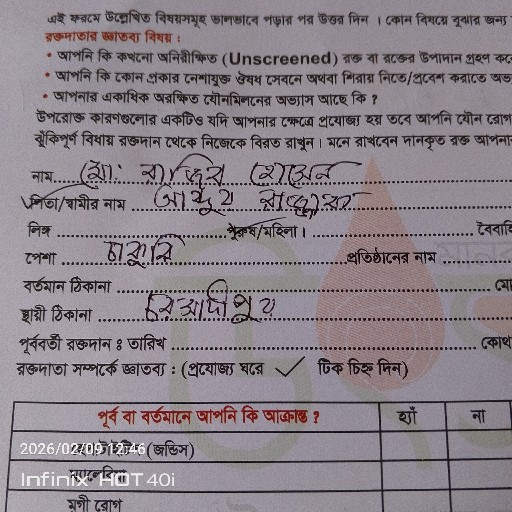 এই ফরমে উল্লেখিত বিষয়সমূহ ভালভাবে পড়ার পর উত্তর দিন । কোন বিষয়ে বুঝার জন্য
রক্তদাতার জ্ঞাতব্য বিষয় :
• আপনি কি কখনো অনিরীক্ষিত (Unscreened) রক্ত বা রক্তের উপাদান গ্রহণ করে
• আপনি কি কোন প্রকার নেশাযুক্ত ঔষধ সেবনে অথবা শিরায় নিতে/প্রবেশ করাতে অভ
• আপনার একাধিক অরক্ষিত যৌনমিলনের অভ্যাস আছে কি ?
উপরোক্ত কারণগুলোর একটিও যদি আপনার ক্ষেত্রে প্রযোজ্য হয় তবে আপনি যৌন রোগ
ঝুঁকিপূর্ণ বিধায় রক্তদান থেকে নিজেকে বিরত রাখুন । মনে রাখবেন দানকৃত রক্ত আপনার
নাম মো: হোসেন
পিতা/স্বামীর নাম আব্দুর
লিঙ্গ পুরুষ/মহিলা । বৈবাহি
পেশা চাকুরি প্রতিষ্ঠানের নাম
বর্তমান ঠিকানা (মো
স্থায়ী ঠিকানা
পূর্ববর্তী রক্তদান ঃ তারিখ (কোথ
রক্তদাতা সম্পর্কে জ্ঞাতব্য : (প্রযোজ্য ঘরে ✓ টিক চিহ্ন দিন)
পূর্ব বা বর্তমানে আপনি কি আক্রান্ত ? হ্যাঁ না
(জন্ডিস)
2026/02/09 12:46
ম্যালেরিয়া
Infinix HOT 40i
মৃগী রোগ